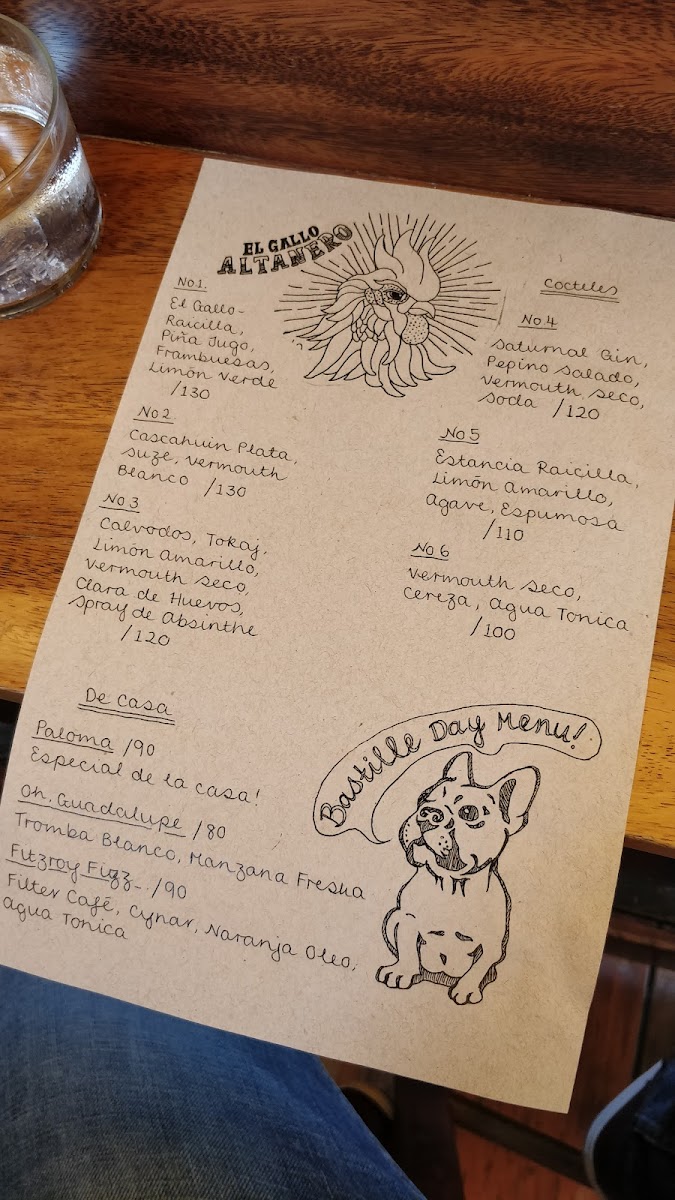 EL GALLO
ALTANERO
No1.
El Gallo-
Raicilla,
Piña Jugo,
Frambuesas,
Limón Verde
/130
No2
Cascahuin Plata,
Suze, Vermouth
Blanco /130
No3
Calvodos, Tokaj,
Limón Amarillo,
Vermouth Seco,
Clara de Huevos,
Spray de Absinthe
/120
Cocteles
No.4
Saturnal Gin,
Pepino Salado,
Vermouth Seco,
Soda /120
No5
Estancia Raicilla,
Limón Amarillo,
Agave, Espumosa
/110
No6
Vermouth Seco,
Cereza, Agua Tonica
/100
De Casa
Paloma /90
Especial de la casa!
Oh, Guadalupe /80
Tromba Blanco, Manzana Freska
Fitzroy Fizz /90
Filter Café, Cynar, Naranja Oleo,
Agua Tonica
Bastille Day Menu!